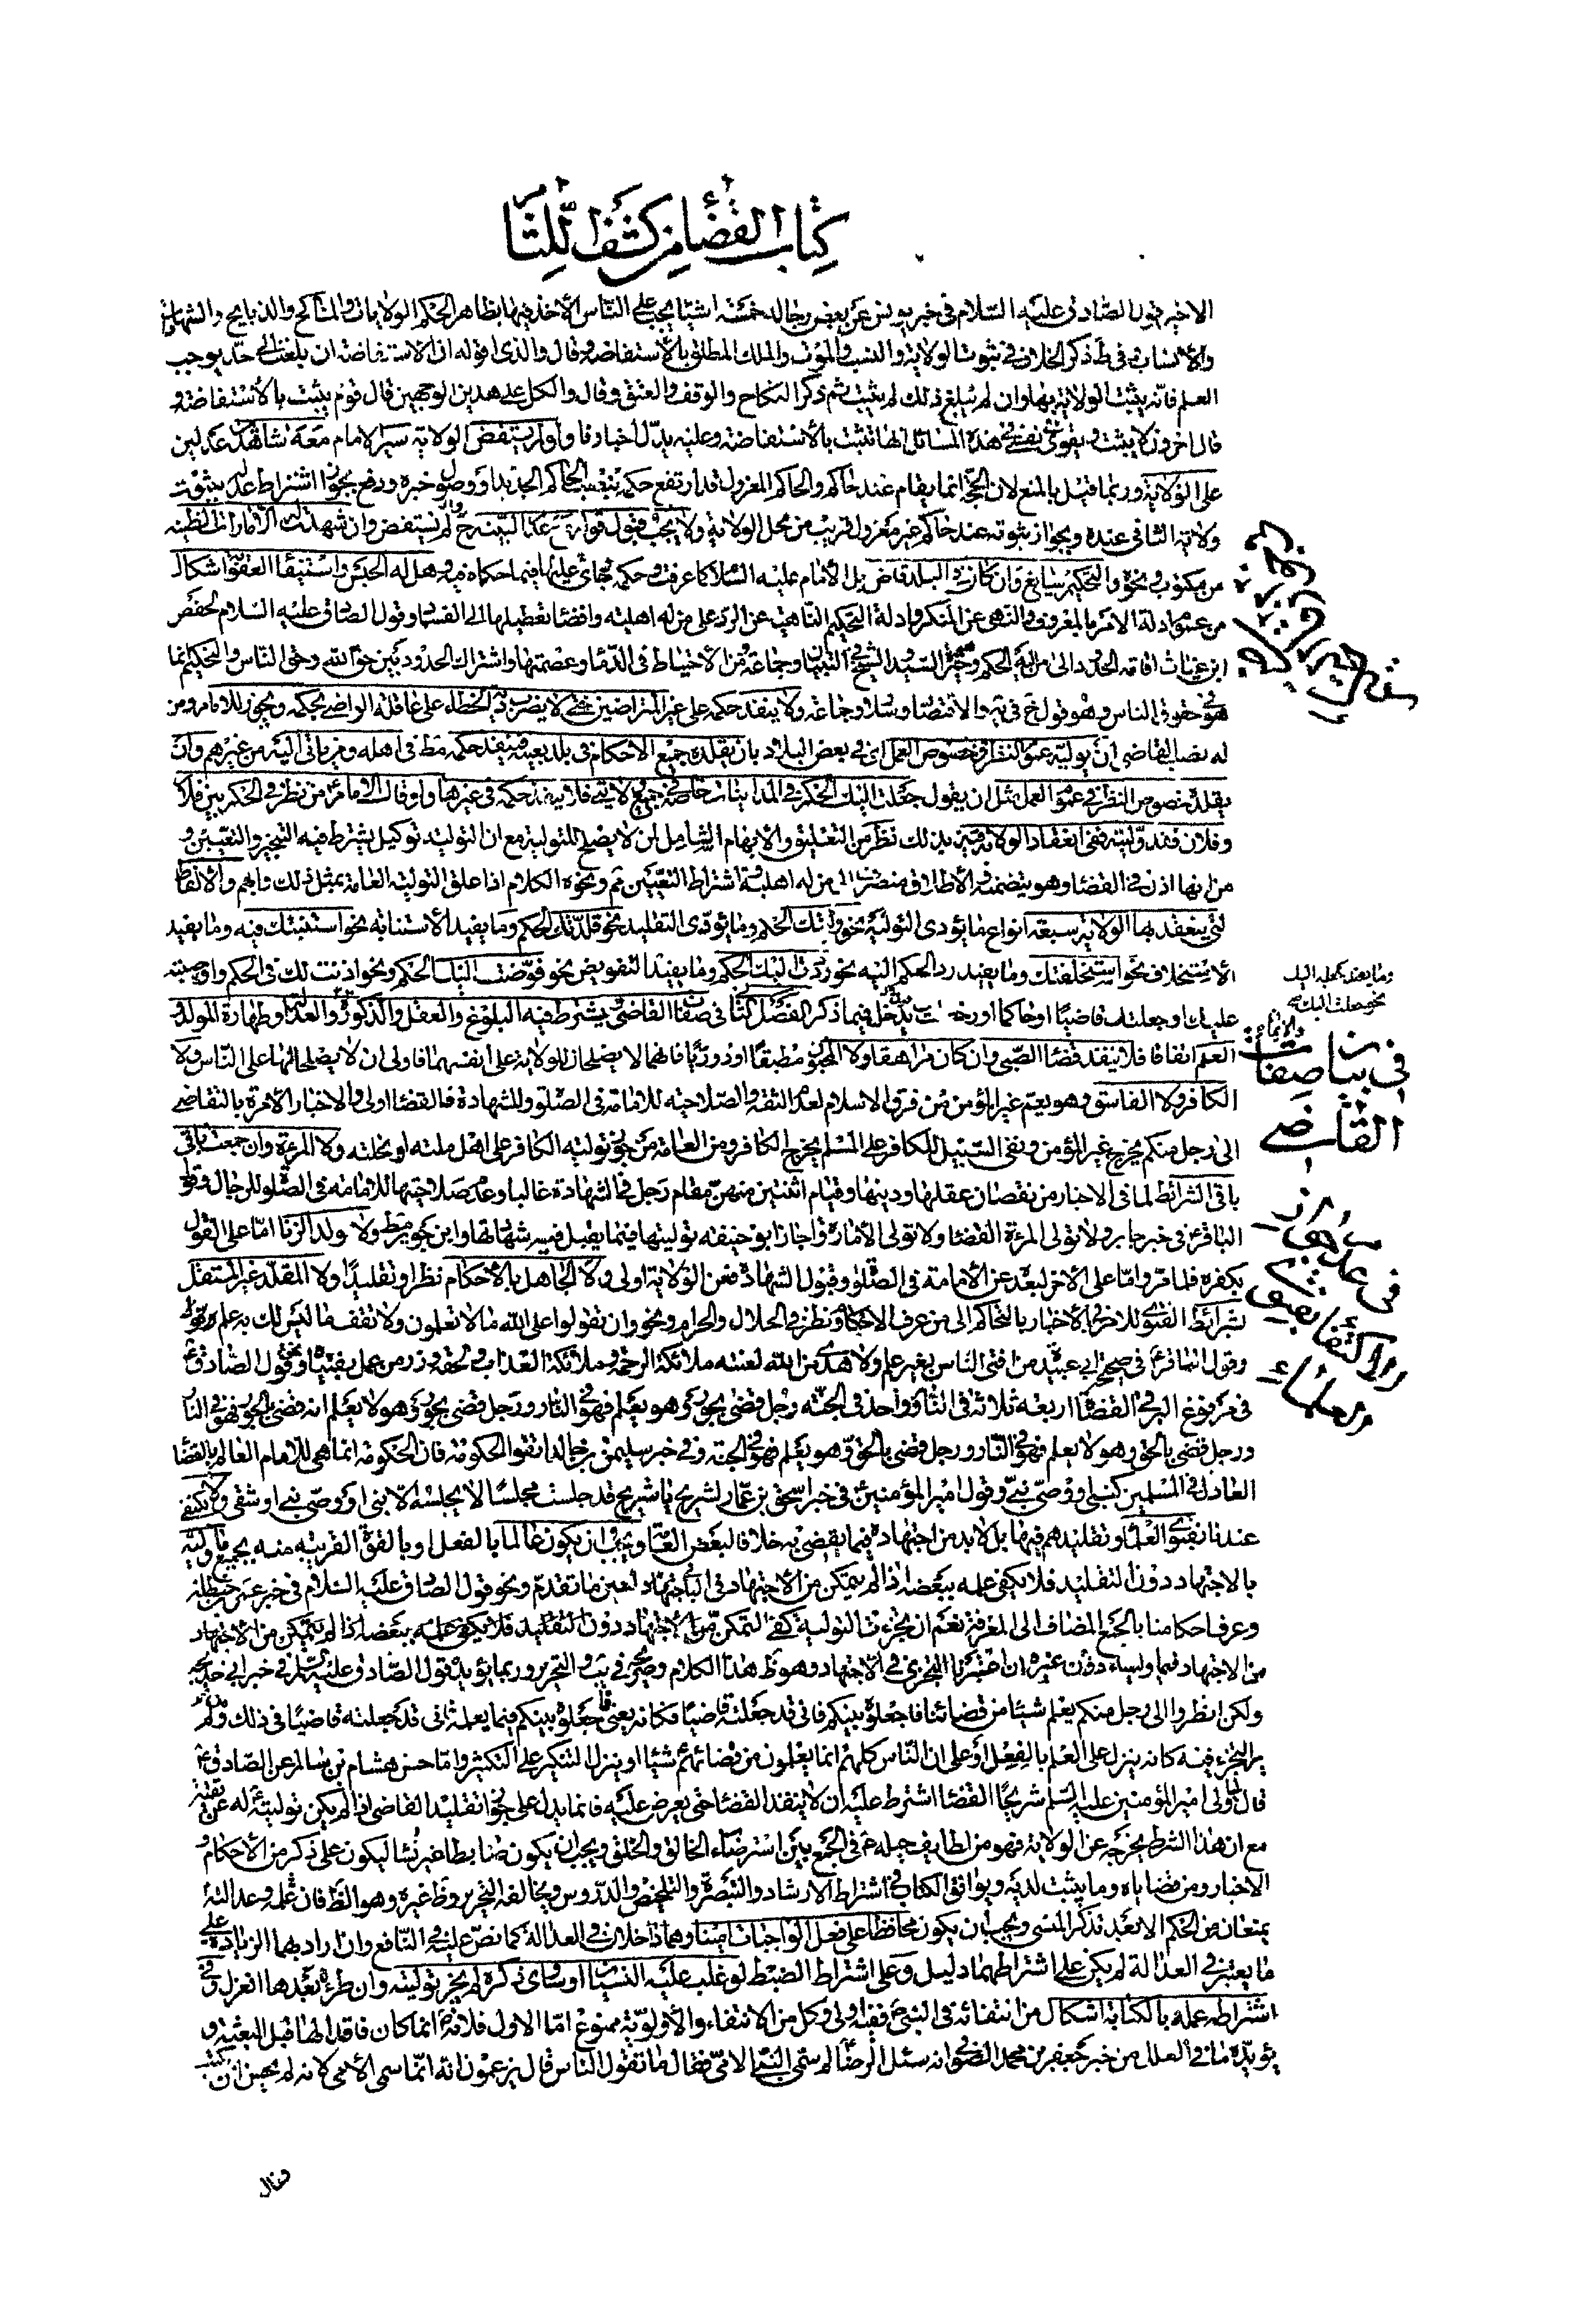 كتاب القضا من كشف اللثام
الاخير قول الصّادق عليه السّلام فى خبر يونس عن بعض رجاله خمسة اشيا يجب على النّاس الأخذ فيها بظاهر الحكم الولايات والمناكح والذبايح والشهادات
والأنساب وفى ط ذكر الخلاف فى ثبوت الولاية والنسب والموت والملك المطلق بالأستفاضة وقال والذى اقوله ان الاستفاضة ان بلغت الى حدّ يوجب
العلم فانّه يثبت الولاية بها وان لم تبلغ ذلك لم يثبت ثم ذكر النكاح والوقف والعتق وقال والكل على هذين الوجهين قال قوم يثبت بالأستفاضة و
قال اخرون لا يثبت ويقوى فى نفسى فى هذه المسائل انها تثبت بالأستفاضة وعليه يدلّ اخبارنا ولو لم يستفض الولاية سيّر الامام معه شاهدين عدلين
على الولاية وربما قيل بالمنع لان الحجّة انما يقام عند حاكم والحاكم المعزول قد ارتفع حكمه بنصب الحاكم الجديد او وصول خبره ودفع بجواز اشتراط عزله بثبوت
ولاية الثانى عنده وبجواز ثبوته عند حاكم غير معزول قريب من محل الولاية ولا يجب قبول قوله مع عدم البيّنة وان لم يستفض وان شهدت له الأمارات الظنيّه
من مكتوب ونحوه والتحكيم سايغ وان كان فى البلد قاض بل الأمام عليه السّلام كما عرفت وحكمه نجاى عليهما فيما حكماه فيه وهل له الحبس واستيفاء العقوبة اشكال
من عموم ادلة الامر بالمعروف والنهى عن المنكر وادلة التحكيم الناهية عن الردّ على من له اهليته وافضاء تعطيلها الى الفساد وقول الصادق عليه السلام لحفص
ابن غياث اقامة الحدود الى من اليه الحكم وهو خيرة السيّد والشيخ فى التبيان وجماعة ومن الأحتياط فى الدّماء وعصمتها واشتراك الحدود بين حق الله وحق الناس والتحكيم انما
هو فى حقوق الناس وهو قول خ فى ية والاقتصاد وسلار وجماعة ولا ينفذ حكمه على غير المتراضين حتى لا يضرب دية الخطاء على عاقلة الراضى بحكمه ويجوز للامام ومن
له نصب القاضى ان يوليه عموم النظر فى خصوص العمل اى فى بعض البلاد بان يقلده جميع الاحكام فى بلد بعينه فينفذ حكمه مط فى اهله ومن يأتى اليه من غيرهم وان
يقلده خصوص النظر فى عموم العمل مثل ان يقول جعلت اليك الحكم فى المداينات خاصّة فى جميع ولايتى فلا ينفذ حكمه فى غيرها ولو قال الامام من نظر فى الحكم بين فلان
وفلان فقد ولّيته ففى انعقاد الولاية بمن يذلك نظر من التعليق والابهام الشامل لمن لا يصلح للتولية مع ان التوليه توكيل يشترط فيه التنجيز والتعيين و
من انها اذن فى القضا وهو يتضمنه والأطلاق منصرف الى من له اهليته واشتراط التعيين ثم ونحوه الكلام اذا علق التولية العامة بمثل ذلك والجم والألفاظ
لتى ينعقد بها الولاية سبعة انواع ما يؤدى التولية نحو ولّيتك الحكم وما يؤدّى التقليد نحو قلّدتك الحكم وما يفيد الأستنابة نحو استنبتك فيه وما يفيد
الأستخلاف نحو استخلفتك وما يفيد رد الحكم اليه نحو رددت اليك الحكم وما يفيد التفويض نحو فوّضت اليك الحكم ونحو اذنت لك فى الحكم واوصيته
وما يفيد جعله اليك
نحو جعلت اليك صح
عليك او جعلتك قاضيًا او حاكما او رخّصت يدخل فيما ذكر الفصل الثانى فى صفات القاضى ويشترط فيه البلوغ والعقل والذكورة والعدالة وطهارة المولد و
فى بيان صفات
القاضى
العلم اتفاقا فلا ينفذ قضاء الصّبى وان كان مراهقا ولا المجنون مطبقًا او ذوريّا فانهما لا يصلحان للولاية على انفسهما فاولى ان لا يصلحا لها على النّاس ولا
الكافر ولا الفاسق وهو يعمّ غير المؤمن من فرق الاسلام لعدم الثقة والصّلاحيّة للامامة فى الصّلوة وللشهادة فالقضا اولى والاخبار الآمرة بالتقاضى
الى رجل منكم يخرج غير المؤمن ونفى السّبيل للكافر على المسلم يخرج الكافر ومن العامة من جوّز تولية الكافر على اهل ملته او نحلته ولا المرءة وان جمعت باقى
باقى الشرائط لما فى الاخبار من نقصان عقلها ودينها وقيام اثنتين منهنّ مقام رجل فى الشهادة غالبا وعدم صلاحيتها للامامة فى الصّلوة للرجال وقول
الباقر ع فى خبر جابر ولا تولى المرءة القضا ولا تولى الأمارة واجاز ابو حنيفة توليتها فيما يقبل فيه شهادتها وابن جرير مط ولا ولد الزنا امّا على القول
بكفره فلما مّر وامّا على الاخر لبعده عن الامامة فى الصّلوة وقبول الشهادة فعن الولاية اولى ولا الجاهل بالأحكام نظرا وتقليدًا ولا المقلّد غير المستقل
بشرائط الفتوى للامر فى الأخبار بالتحاكم الى من عرف الاحكام ونظر فى الحلال والحرام ونحو وان تقولوا على الله ما لا تعلمون ولا تقف ما ليس لك به علم
وقول الباقر ع فى صحيح ابى عبيدة من افتى النّاس بغير علم ولا هدى من الله لعنته ملائكة الرحمة وملائكة العذاب ولحقه وزر من عمل بفتياه ونحو قول الصّادق ع
فى مرفوع البرقى القضاة اربعة ثلاثة فى النّار وواحد فى الجنّه رجل قضى بجور وهو يعلم فهو فى النّار ورجل قضى بجور وهو لا يعلم انه قضى بالجور فهو فى النار
ورجل قضى بالحق وهو لا يعلم فهو فى النّار ورجل قضى بالحق وهو يعلم فهو فى الجنة وفى خبر سليمن بن خالد اتقوا الحكومة فان الحكومة انما هى للامام العالم بالقضا
العادل فى المسلمين كنبى او وصىّ نبىّ وقول امير المؤمنين ع فى خبر اسحق بن عمّار لشريح يا شريح قد جلست مجلسًا لا يجلسه الا نبى او وصىّ نبى او شقى ولا يكفى
عندنا بفتوى العلماء وتقليدهم فيها بل لا بد من اجتهاده فيما يقضى به خلافا لبعض العامّة ويجب ان يكون عالما بالفعل او بالقوّة القريبة منه بجميع ما وليّه
بالاجتهاد دون التقليد فلا يكفى علمه ببعضه اذا لم يتمكن من الأجتهاد فى الباقى لعين ما تقدّم ونحو قول الصادق عليه السّلام فى خبر عمر بن حنظلة
وعرف احكامنا بالجمع المضاف الى المعرفة نعم ان تجزءت التولية كفى التمكن من الأجتهاد دون التقليد فلا يكفى علمه ببعضه اذا لم يتمكن من الاجتهاد
من الاجتهاد فيما وليه دون غيره ان اعتبرنا التجزى فى الأجتهاد وهو ظ هذا الكلام وصريح فى يب والتحرير وربما يؤيده قول الصّادق عليه السلام فى خبر ابى خديجة
ولكن انظروا الى رجل منكم يعلم شيئا من قضائنا فاجعلوه بينكم فانى قد جعلته قاضيًا فكانه يعنى فاجعلوه بينكم فيما يعلمه فانى قد جعلته قاضيًا فى ذلك ومن لم
ير التجزء فيه كانه ينزل على العلم بالفعل او على ان النّاس كلهم انما يعلمون من قضائهم شيئا او ينزل التنكير على التكثير وامّا حسن هشام بن سالم عن الصّادق ع
قال لما ولى امير المؤمنين عليه السّلم شريحًا القضا اشترط عليه ان لا ينفذ القضا حتى يعرض عليه فانما يدل على نحو تقليد القاضى اذا لم يكن توليته له عن تقيّة
مع ان هذا الشرط يخرجه عن الولاية فهو من لطايف حيله ع فى الجمع بين استرضاء الخالق والخلق ويجب ان يكون ضابطا غير نسّا ليكون على ذكر من الأحكام و
الاخبار ومن قضاياه وما يثبت لديه ويوافق الكتاب فى اشتراط الارشاد والتبصرة والتلخيص والدروس ويخالفه التحرير وظ غيره وهو الظ فان علمه وعدالته
يمنعان من الحكم الا بعد تذكّر المنسى ويجب ان يكون محافظا على فعل الواجبات امينا وهما داخلان فى العدالة كما نصّ عليه فى النّافع وان اراد بهما الزيادة على
ما يعتبر فى العدالة لم يكن على اشتراطهما دليل وعلى اشتراط الضبط لو غلب عليه النسيان او ساوى ذكره لم يجز توليته وان طرء بعدها انعزل وفى
اشتراط علمه بالكتابة اشكال من انتفائه فى النبىّ ص ففيه اولى وكل من الانتفاء والأولويّة ممنوع امّا الاول فلانه انما كان فاقدا لها قبل البعثة و
يؤيّده ما فى العلل من خبر جعفر بن محمد الصّوفى انه سئل الرضا ع لم سمّى النبىّ الامّى فقال ما تقول الناس قال يزعمون انه انّما سمى الأمى لانه لم يحسن ان يكتب
فقال